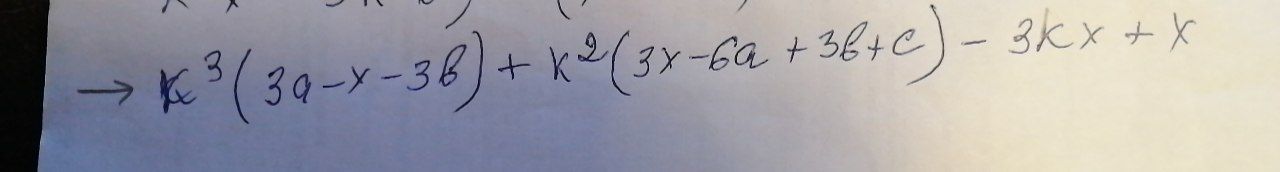 → k³(3a-x-3b)+k²(3x-6a+3b+c)-3kx+x